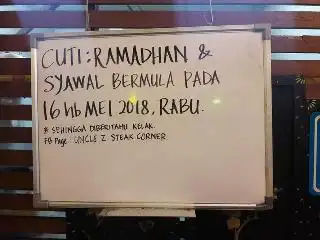 CUTI : RAMADHAN &
SYAWAL BERMULA PADA
16 hb MEI 2018, RABU.
* SEHINGGA DIBERITAHU KELAK.
FB Page : UNCLE Z STEAK CORNER.